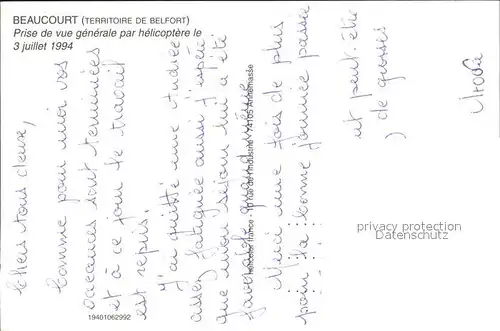 BEAUCOURT (TERRITOIRE DE BELFORT)
Prise de vue générale par hélicoptère le
3 juillet 1994
Chers tous deux,
Comme pour moi vos
vacances sont terminées
et à ce jour le travail
est repris.
J'ai quitté une Andrée
assez fatiguée aussi j'espère
que mon séjour lui a été
Merci une fois de plus
pour la bonne journée passée
et peut-être
de grosses
10 rue de l'Industrie - 74105 Annemasse
19401062992
privacy protection
Datenschutz